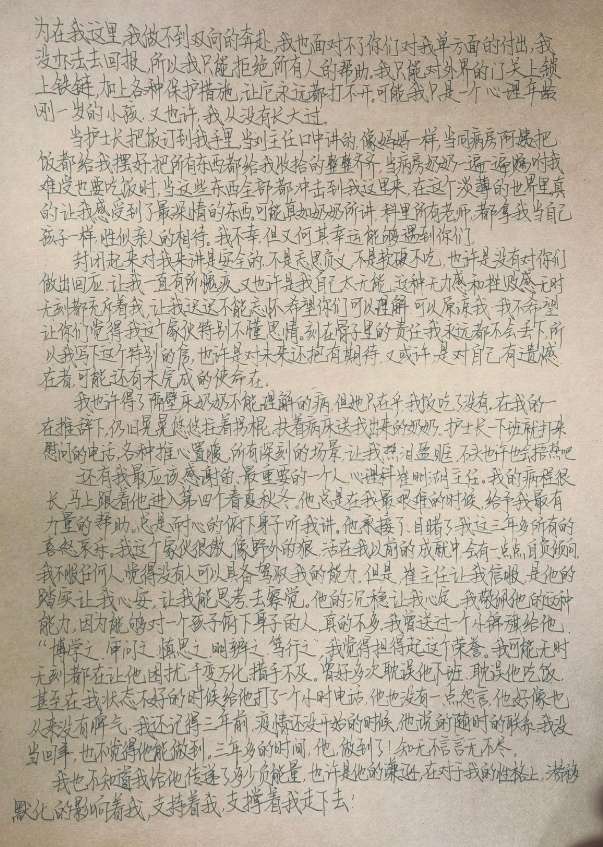 为在我这里,我做不到双向的奔赴,我也面对不了你们对我单方面的付出,我
没办法去回报,所以我只能拒绝所有人的帮助。我只能对外界的门关上锁
上铁链,加上各种保护措施,让它永远都打不开。可能我只是一个心理年龄
刚一岁的小孩,又也许,我从没有长大过。
当护士长把饭订到我手里,当刘主任口中讲的,像妈妈一样,当同病房阿姨把
饭都给我摆好,把所有东西都给我收拾的整整齐齐,当病房奶奶一遍一遍嘱咐我
难受也要吃饭时,当这些东西全部都冲击到我这里来,在这个淡薄的世界里真
的让我感受到了最柔情的东西,可能真如奶奶所讲,科里所有老师,都拿我当自己
孩子一样,性似亲人的相待。我不幸,但又何其幸运能够遇到你们。
封闭起来对我来讲是安全的,不是无思义,不是软硬不吃,也许是没有对你们
做出回应,让我一直有所愧疚,又也许是我自己太无能,这种无力感和挫败感无时
无刻都充斥着我,让我迟迟不能忘怀,希望你们可以理解,可以原谅我,我不希望
让你们觉得我这个家伙特别不懂恩情。刻在骨子里的责任我永远都不会丢下,所
以我写下这个特别的信,也许是对未来还抱有期待,又或许是对自己有遗憾
在者,可能还有未完成的使命在。
我也许得了隔壁床奶奶不能理解的病,但她只在乎我饭吃了没有,在我的一
在推辞下,仍旧晃晃悠悠拄着拐棍,扶着病床送我出来的奶奶,护士长下班就打来
慰问的电话,各种推心置腹,所有深刻的场景,让我热泪盈眶,
还有我最应该感谢的,最重要的一个人,心理科崔主任。我的病程很
长,马上跟着他进入第四个春夏秋冬。他总是在我最艰难的时候,给予我最有
力量的帮助。总是耐心的俯下身子听我讲。他承接了,目睹了,我这三年多所有的
喜怒哀乐,我这个家伙很傲,像野外的狼,活在我以前的成就中会有一点点自负倾向,
我不服任何人,觉得没有人可以具备驾驭我的能力,但是,崔主任让我信服,是他的
踏实让我心安,让我能思考去察觉。他的沉稳让我心定,我敬佩他的这种
能力,因为能够对一个孩子俯下身子的人,真的不多,我曾送过一个小锦旗给他,
“博学之,审问之,慎思之,明辨之,笃行之”,我觉得担得起这个荣誉。我可能无时
无刻都在让他困扰,千变万化,措手不及。曾好多次耽误他下班,耽误他吃饭,
甚至在我状态不好的时候给他打了一个小时电话,他也没有一点怨言,他好像也
从来没有脾气。我还记得三年前,疫情还没开始的时候,他说的随时的联系,我没
当回事,也不觉得他能做到,三年多的时间,他,做到了!知无不言言无不尽。
我也不知道我给他传递了多少负能量,也许是他的秉性,在对于我的性格上,潜移
默化的影响着我,支持着我,支撑着我走下去!